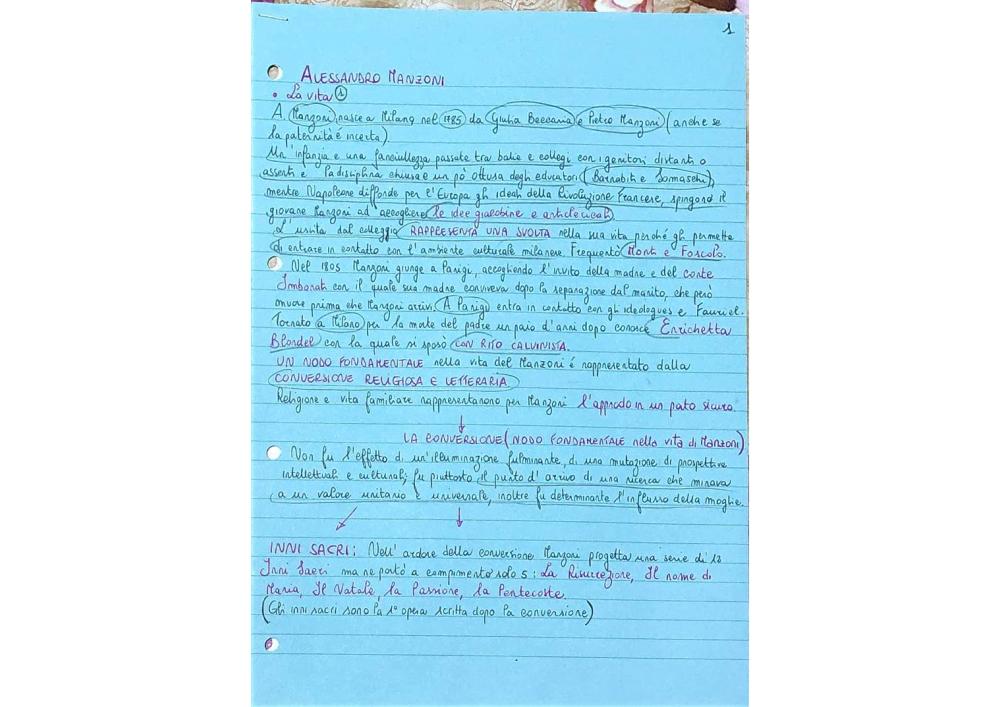 1
ALESSANDRO MANZONI
• La vita ①
A. Manzoni nasce a Milano nel 1785 da Giulia Beccaria e Pietro Manzoni (anche se
la paternità è incerta).
Un'infanzia e una fanciullezza passate tra balie e collegi con i genitori distanti o
assenti e la disciplina chiusa e un po' ottusa degli educatori (Barnabiti e Somaschi),
mentre Napoleone diffonde per l'Europa gli ideali della Rivoluzione Francese, spingono il
giovane Manzoni ad accogliere le idee giacobine e anticlericali.
L'uscita dal collegio RAPPRESENTA UNA SVOLTA nella sua vita perché gli permette
di entrare in contatto con l'ambiente culturale milanese. Frequentò Monti e Foscolo.
Nel 1805 Manzoni giunge a Parigi, accogliendo l'invito della madre e del conte
Imbonati con il quale sua madre conviveva dopo la separazione dal marito, che però
muore prima che Manzoni arrivi. A Parigi entra in contatto con gli ideologues e Fauriel.
Tornato a Milano per la morte del padre un paio d'anni dopo conosce Enrichetta
Blondel con la quale si sposò CON RITO CALVINISTA.
UN NODO FONDAMENTALE nella vita del Manzoni é rappresentato dalla
CONVERSIONE RELIGIOSA E LETTERARIA
Religione e vita familiare rappresentarono per Manzoni l'approdo in un porto sicuro.
↓
LA CONVERSIONE (NODO FONDAMENTALE nella vita di Manzoni)
Non fu l'effetto di un'illuminazione fulminante, di una mutazione di prospettive
intellettuali e culturali; fu piuttosto il punto d'arrivo di una ricerca che mirava
a un valore unitario e universale, inoltre fu determinante l'influsso della moglie.
↙ ↓
INNI SACRI: Nell'ardore della conversione Manzoni progetta una serie di 12
Inni Sacri ma ne portò a compimento solo 5: La Risurrezione, Il nome di
Maria, Il Natale, la Passione, la Pentecoste.
(Gli inni sacri sono la 1° opera scritta dopo la conversione)